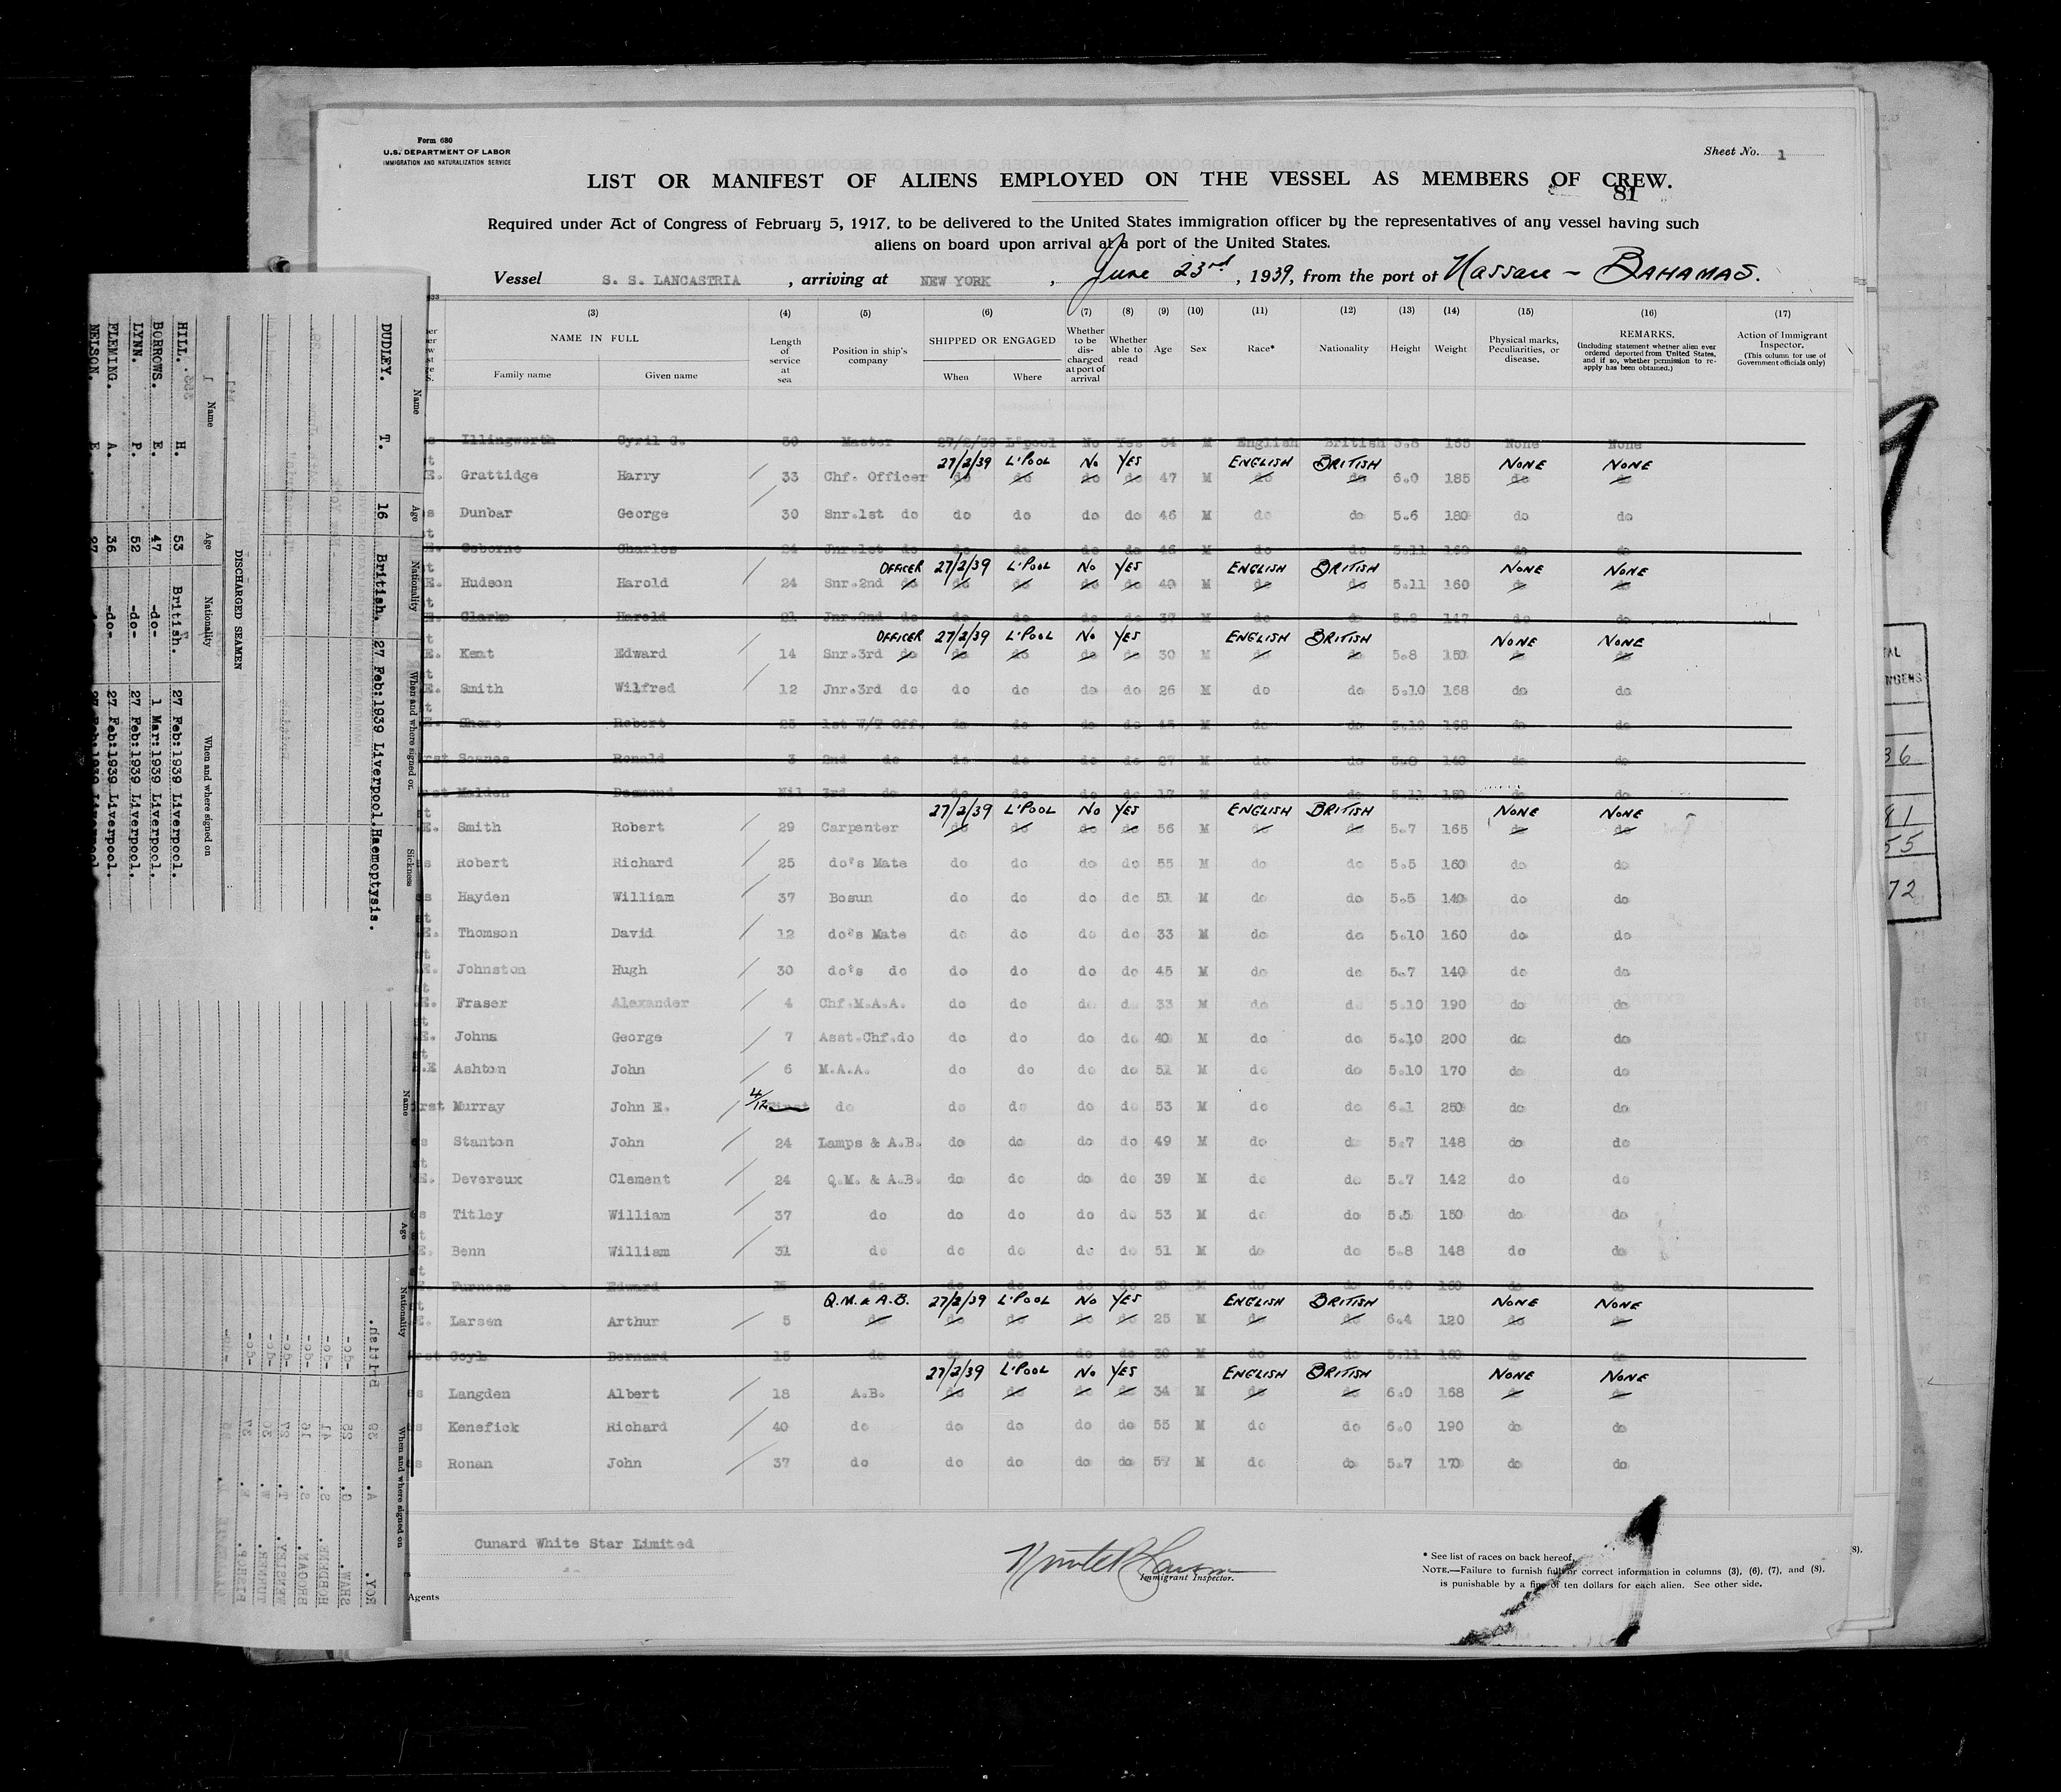 Form 680
U.S. DEPARTMENT OF LABOR
IMMIGRATION AND NATURALIZATION SERVICE
Sheet No. 1
LIST OR MANIFEST OF ALIENS EMPLOYED ON THE VESSEL AS MEMBERS OF CREW.
81
Required under Act of Congress of February 5, 1917, to be delivered to the United States immigration officer by the representatives of any vessel having such
aliens on board upon arrival at a port of the United States.
Vessel S. S. LANCASTRIA , arriving at NEW YORK , June 23rd , 1939, from the port of Nassau - BAHAMAS.
(3) (4) (5) (6) (7) (8) (9) (10) (11) (12) (13) (14) (15) (16) (17)
NAME IN FULL Length of service at sea Position in ship's company SHIPPED OR ENGAGED Whether to be discharged at port of arrival Whether able to read Age Sex Race* Nationality Height Weight Physical marks, Peculiarities, or disease. REMARKS. (Including statement whether alien ever ordered deported from United States, and if so, whether permission to re-apply has been obtained.) Action of Immigrant Inspector. (This column for use of Government officials only)
Family name Given name When Where
Illingworth Cyril G. 30 Master 27/2/39 L'pool No Yes 54 M English British 5.8 165 None None
27/2/39 L'POOL No YES ENGLISH BRITISH NONE NONE
Grattidge Harry 33 Chf. Officer do do do do 47 M do do 6.0 185 do do
Dunbar George 30 Snr.1st do do do do do 46 M do do 5.6 180 do do
Osborne Charles 24 Jnr.1st do do do do do 46 M do do 5.11 160 do do
OFFICER 27/2/39 L'POOL No YES ENGLISH BRITISH NONE NONE
Hudson Harold 24 Snr.2nd do do do do do 40 M do do 5.11 160 do do
Clarke Harold 21 Jnr.2nd do do do do do 37 M do do 5.8 147 do do
OFFICER 27/2/39 L'POOL No YES ENGLISH BRITISH NONE NONE
Kent Edward 14 Snr.3rd do do do do do 30 M do do 5.8 150 do do
Smith Wilfred 12 Jnr.3rd do do do do do 26 M do do 5.10 168 do do
Shore Robert 25 1st W/T Off. do do do do 45 M do do 5.10 168 do do
Ronald 3 2nd do do do do do 27 M do do 140 do do
Desmond Nil 3rd do do do do do 17 M do do 5.11 150 do do
27/2/39 L'POOL No YES ENGLISH BRITISH NONE NONE
Smith Robert 29 Carpenter do do do do 56 M do do 5.7 165 do do
Robert Richard 25 do's Mate do do do do 55 M do do 5.5 160 do do
Hayden William 37 Bosun do do do do 51 M do do 5.5 140 do do
Thomson David 12 do's Mate do do do do 33 M do do 5.10 160 do do
Johnston Hugh 30 do's do do do do do 45 M do do 5.7 140 do do
Fraser Alexander 4 Chf.M.A.A. do do do do 33 M do do 5.10 190 do do
Johns George 7 Asst.Chf.do do do do do 40 M do do 5.10 200 do do
Ashton John 6 M.A.A. do do do do 51 M do do 5.10 170 do do
Murray John E. 4/12 First do do do do do 53 M do do 6.1 250 do do
Stanton John 24 Lamps & A.B. do do do do 49 M do do 5.7 148 do do
Devereux Clement 24 Q.M. & A.B. do do do do 39 M do do 5.7 142 do do
Titley William 37 do do do do do 53 M do do 5.5 150 do do
Benn William 31 do do do do do 51 M do do 5.8 148 do do
Furness Edward do do do do do M do do 6.0 160 do do
Q.M. & A.B. 27/2/39 L'POOL No YES ENGLISH BRITISH NONE NONE
Larsen Arthur 5 do do do do do 25 M do do 6.4 120 do do
Bernard 15 do do do do do 30 M do do 5.11 160 do do
27/2/39 L'POOL No YES ENGLISH BRITISH NONE NONE
Langden Albert 18 A.B. do do do do 34 M do do 6.0 168 do do
Kenefick Richard 40 do do do do do 55 M do do 6.0 190 do do
Ronan John 37 do do do do do 57 M do do 5.7 170 do do
Cunard White Star Limited
Agents
Immigrant Inspector.
* See list of races on back hereof.
NOTE.—Failure to furnish full or correct information in columns (3), (6), (7), and (8),
is punishable by a fine of ten dollars for each alien. See other side.
Name Age Nationality When and where signed on. Sickness
DUDLEY. T. 16 British. 27 Feb:1939 Liverpool. Haemoptysis.
DISCHARGED SEAMEN
Name Age Nationality When and where signed on
HILL. H. 53 British. 27 Feb:1939 Liverpool.
BORROWS. E. 47 -do- 1 Mar:1939 Liverpool.
LYNN. P. 52 -do- 27 Feb:1939 Liverpool.
FLEMING. A. 36 -do- 27 Feb:1939 Liverpool.
NELSON. E. 27 27 Feb:1939 Liverpool.
Name Age Nationality When and where signed on
36
72